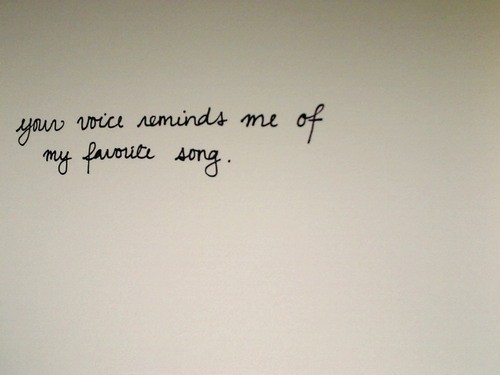 your voice reminds me of
my favorite song.